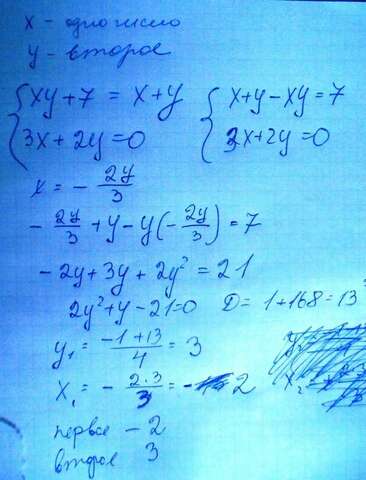 x - одно число
y - второе
{xy + 7 = x + y {x + y - xy = 7
{3x + 2y = 0 {3x + 2y = 0
x = - 2y/3
- 2y/3 + y - y(- 2y/3) = 7
- 2y + 3y + 2y² = 21
2y² + y - 21 = 0 D = 1 + 168 = 13²
y₁ = (-1 + 13)/4 = 3
x₁ = - (2·3)/3 = - 2
первое - 2
второе 3